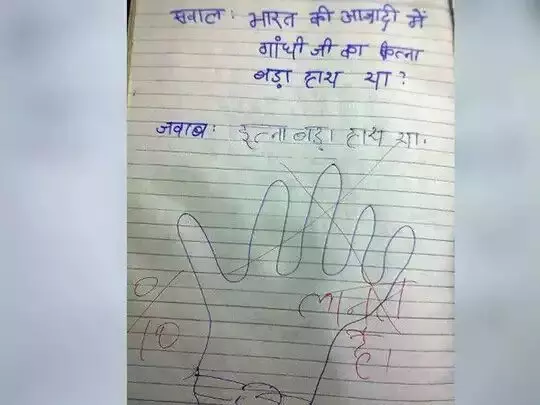 सवाल: भारत की आजादी में
गांधी जी का कितना
बड़ा हाथ था?
जवाब: इतना बड़ा हाथ था.
0
10
लानत
है।